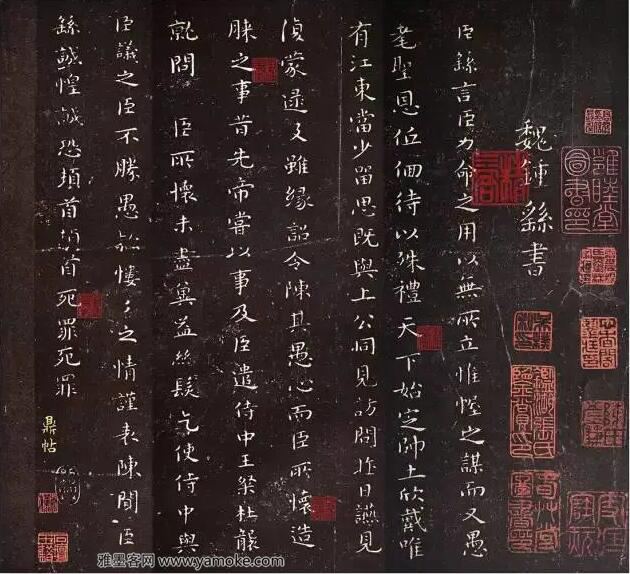 魏鍾繇書
臣繇言臣力命之用以無所立惟幄之謀而又愚
耄聖恩低佪待以殊禮天下始定帥土欣戴唯
有江東當少留思既與上公同見訪問昨日嬿見
復蒙逮及雖緣詔令陳其愚心而臣所懷造
膝之事昔先帝嘗以事及臣遣侍中王粲杜襲
就問 臣所懷未盡冀益絲髮乞使侍中與
臣議之臣不勝愚款慺々之情謹表陳聞臣
繇誠惶誠恐頓首頓首死罪死罪
鼎帖
雅墨客网 www.yamoke.com